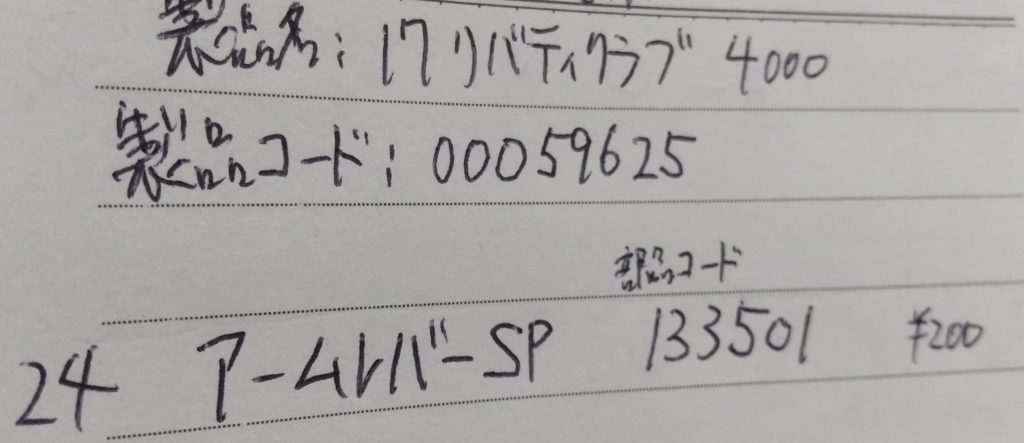 製品名：17リバティクラブ 4000
製品コード：00059625
部品コード
24 アームレバーSP 133501 ¥200